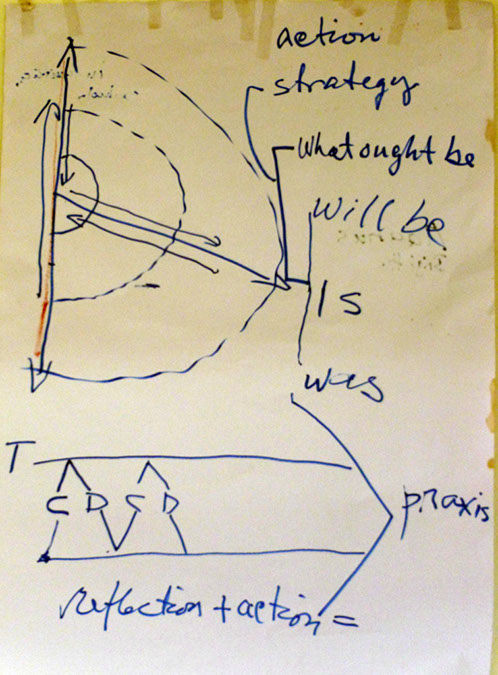 action
strategy
What ought be
will be
Is
was
T
C D C D
praxis
reflection + action =